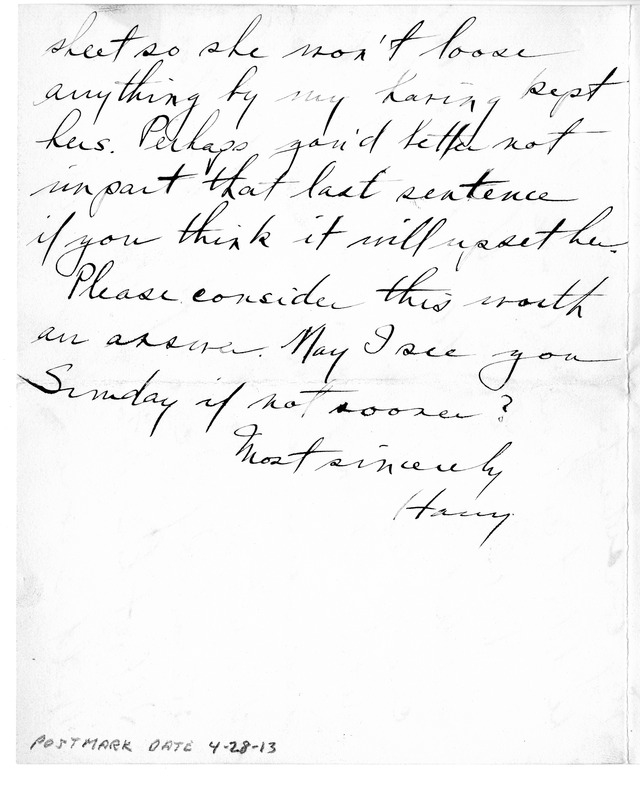 sheet so she won't loose
anything by my having kept
hers. Perhaps you'd better not
impart that last sentence
if you think it will upset her.
Please consider this worth
an answer. May I see you
Sunday if not sooner?
Most sincerely
Harry
POSTMARK DATE 4-28-13